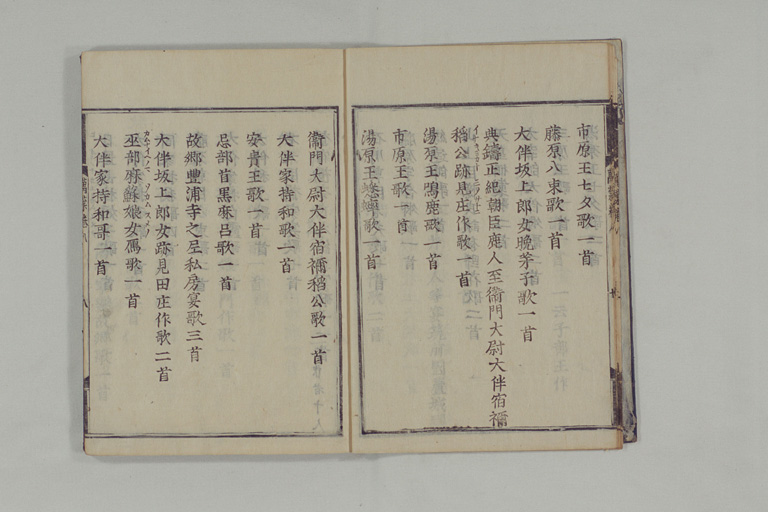 市原王七夕歌一首
藤原八束歌一首
大伴坂上郎女晩芽子歌一首
典鑄正紀朝臣鹿人至衞門大尉大伴宿禰
稻公跡見庄作歌一首
湯原王鳴鹿歌一首
市原王歌一首
湯原王蟋蟀歌一首
衞門大尉大伴宿禰稻公歌一首
大伴家持和歌一首
安貴王歌一首
忌部首黒麻呂歌一首
故郷豐浦寺之尼私房宴歌三首
大伴坂上郎女跡見田庄作歌二首
巫部麻蘇娘女鴈歌一首
大伴家持和哥一首
萬葉巻八